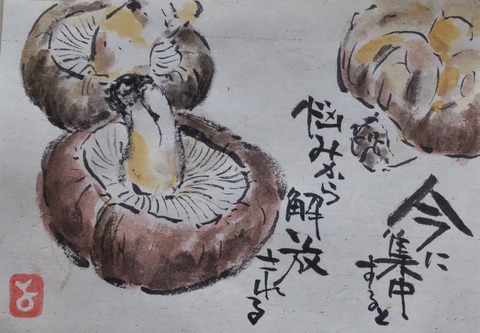 今に
集中
すると
悩みから
解放
される